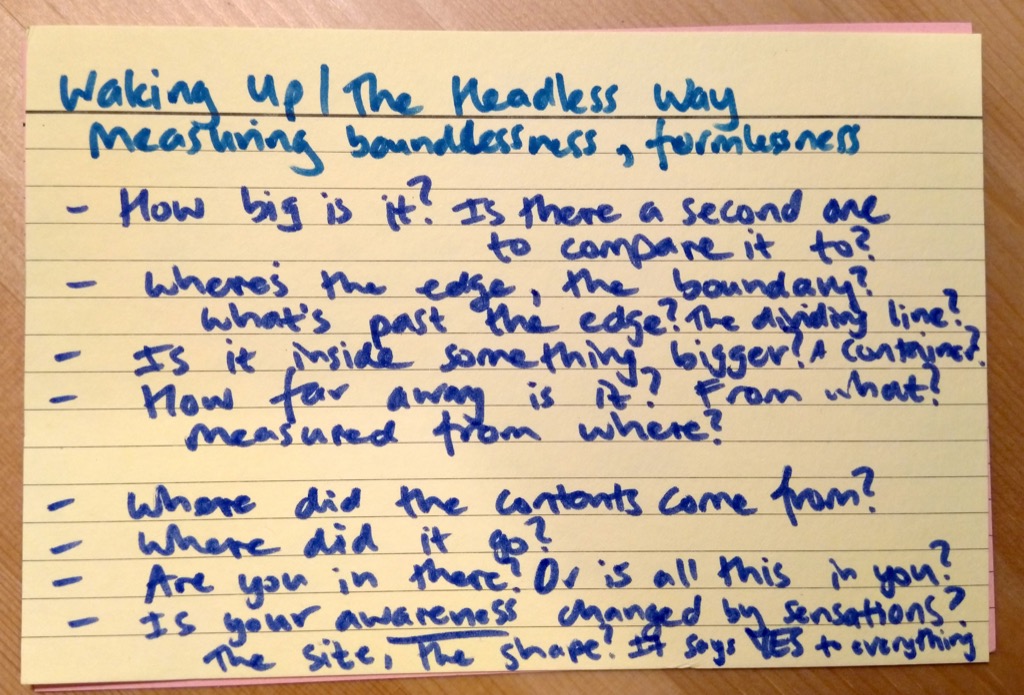 Waking Up / The Headless Way
Measuring boundlessness, formlessness
- How big is it? Is there a second one
to compare it to?
- Where's the edge, the boundary?
What's past the edge? The dividing line?
- Is it inside something bigger? A container?
- How far away is it? From what?
Measured from where?
- Where did the contents come from?
- Where did it go?
- Are you in there? Or is all this in you?
- Is your awareness changed by sensations?
The site, The shape? It says YES to everything